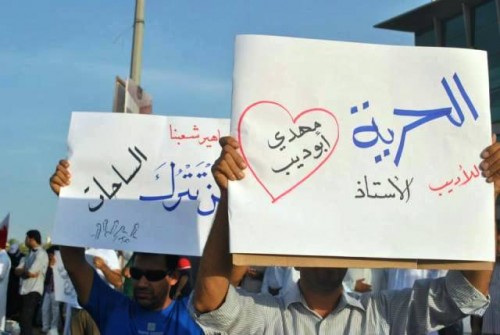 الحرية
للأديب الأستاذ
مهدي
أبوديب
اهير شعبنا
لن نترك الساحات